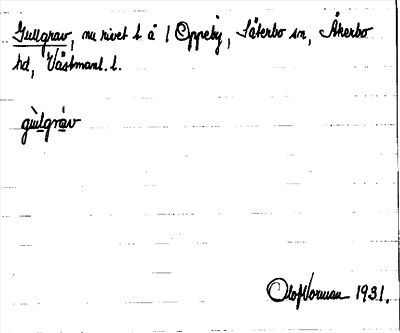 Gullgrav, nu rivet t å 1 Oppeby, Säterbo sn, Åkerbo
hd, Västmanl. l.
gùlgráv
Olof Norman 1931.